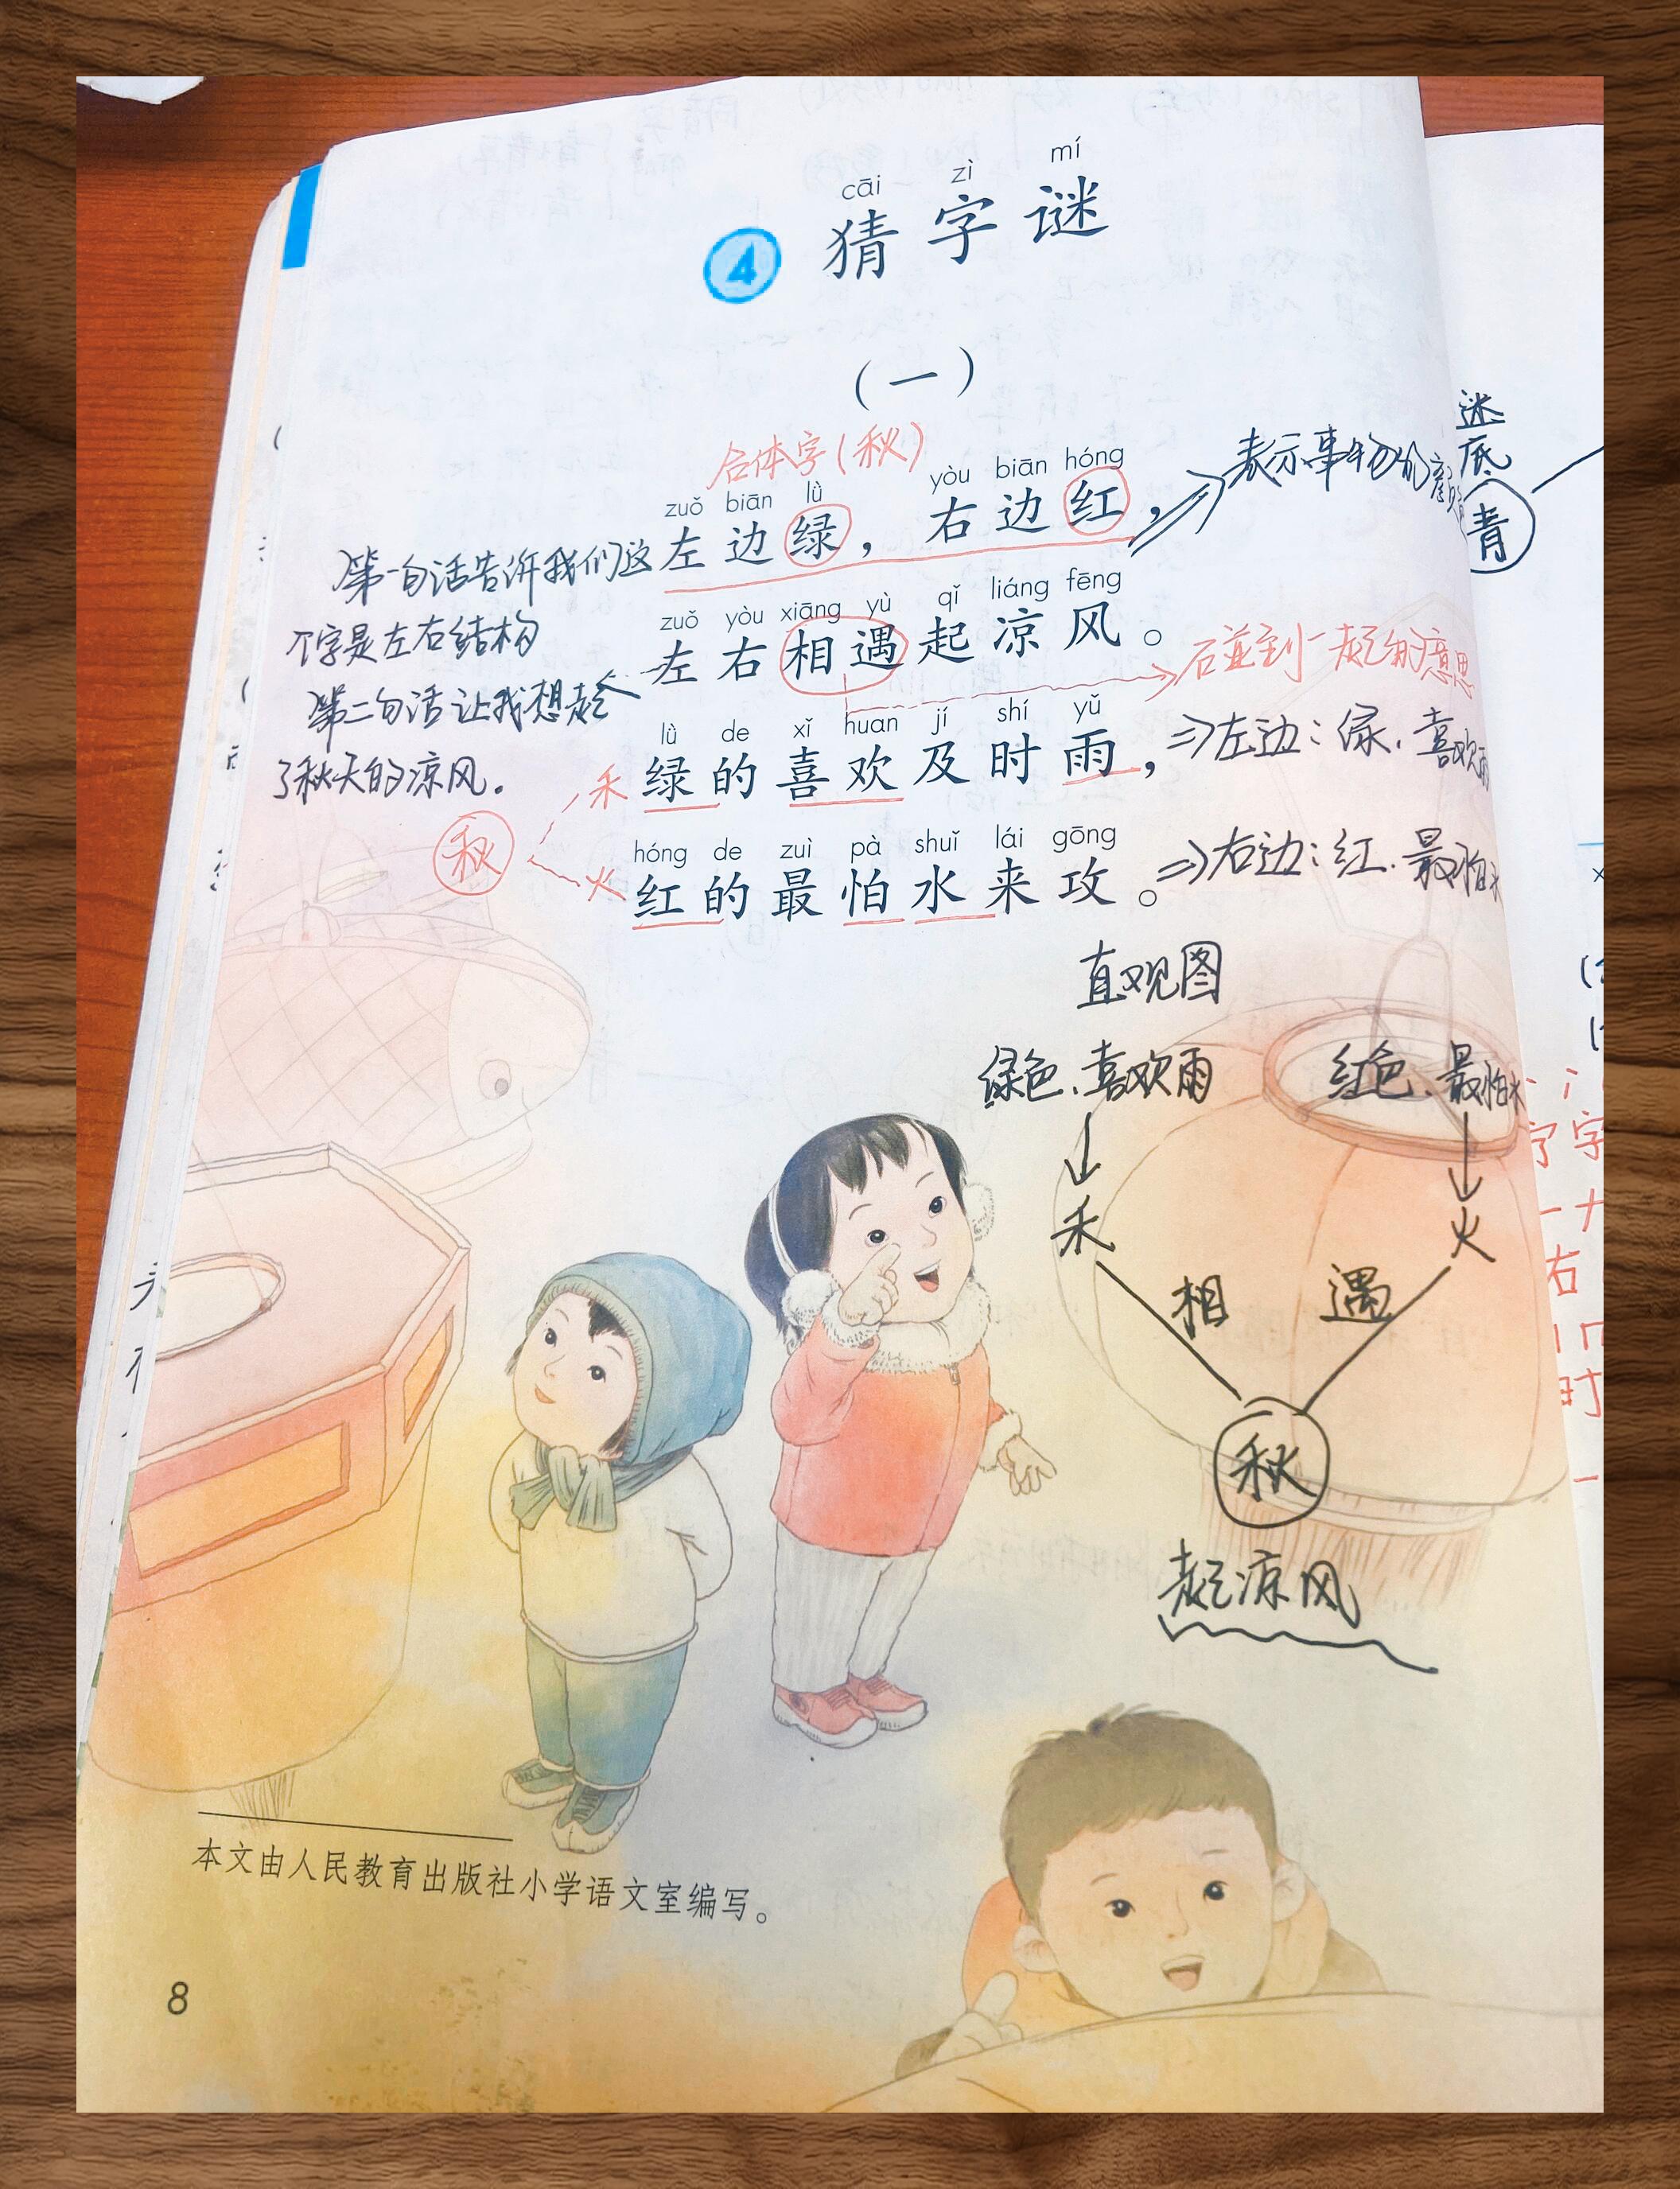 cāi zì mí
4 猜字谜
(一)
合体字(秋)
zuǒ biān lǜ yòu biān hóng
左边绿，右边红，
表示事物的
迷底
青
第一句话告诉我们这
个字是左右结构
zuǒ yòu xiāng yù qǐ liáng fēng
左右相遇起凉风。
碰到一起的意思
第二句话让我想起
了秋天的凉风。
lǜ de xǐ huan jí shí yǔ
禾 绿的喜欢及时雨，
⇒左边：绿、喜欢雨
秋
hóng de zuì pà shuǐ lái gōng
火 红的最怕水来攻。
⇒右边：红、最怕水
直观图
绿色、喜欢雨 红色、最怕水
禾 火
相 遇
秋
起凉风
本文由人民教育出版社小学语文室编写。
8